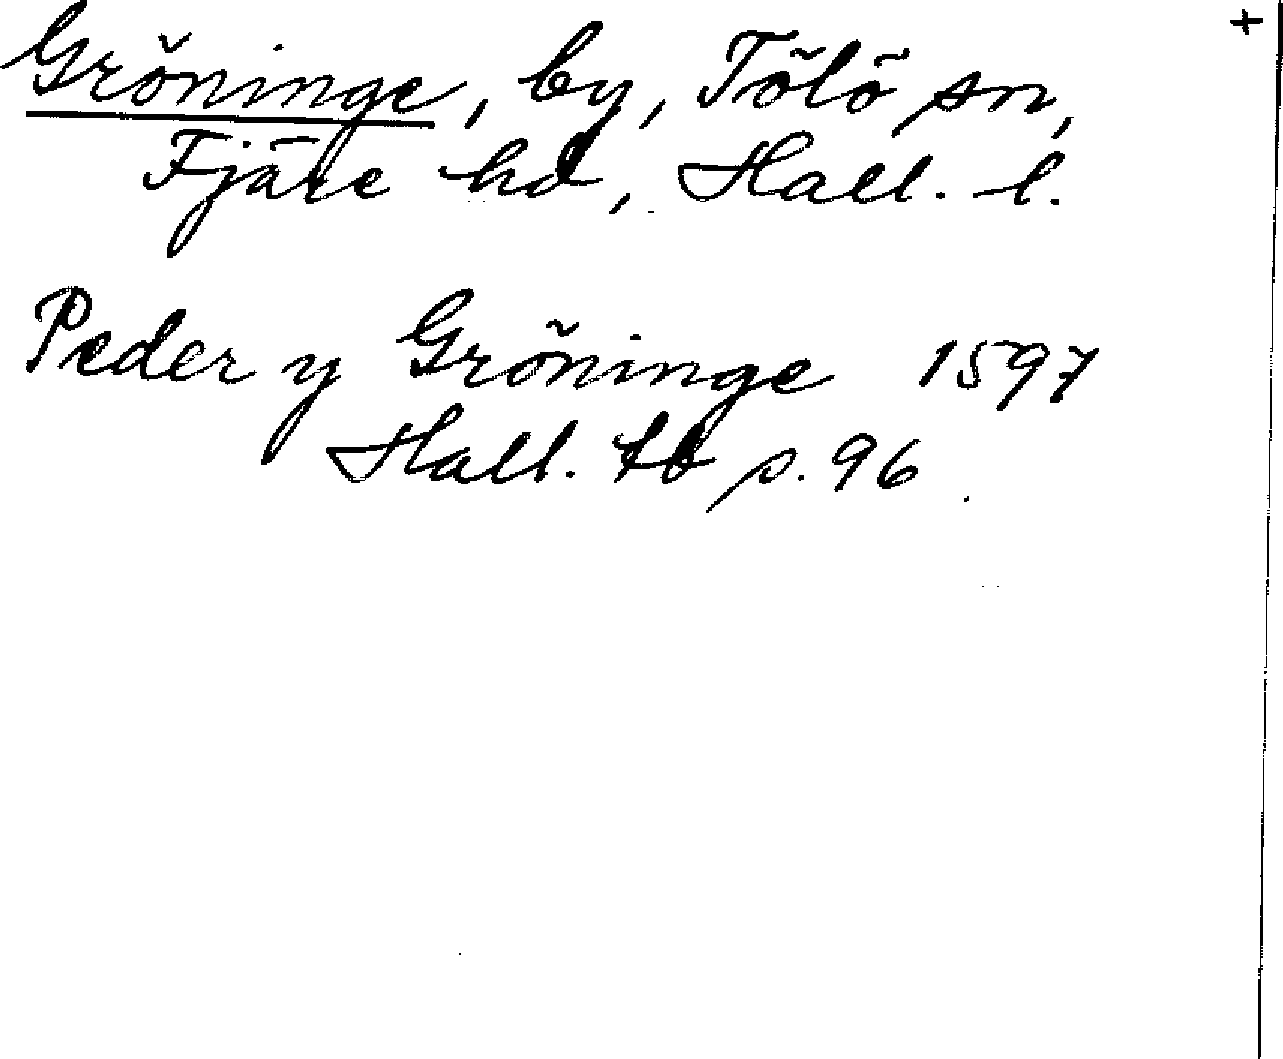 +
Gröninge, by, Tölö sn,
Fjäre hd, Hall. l.
Peder y Gröninge 1597
Hall. tb p. 96